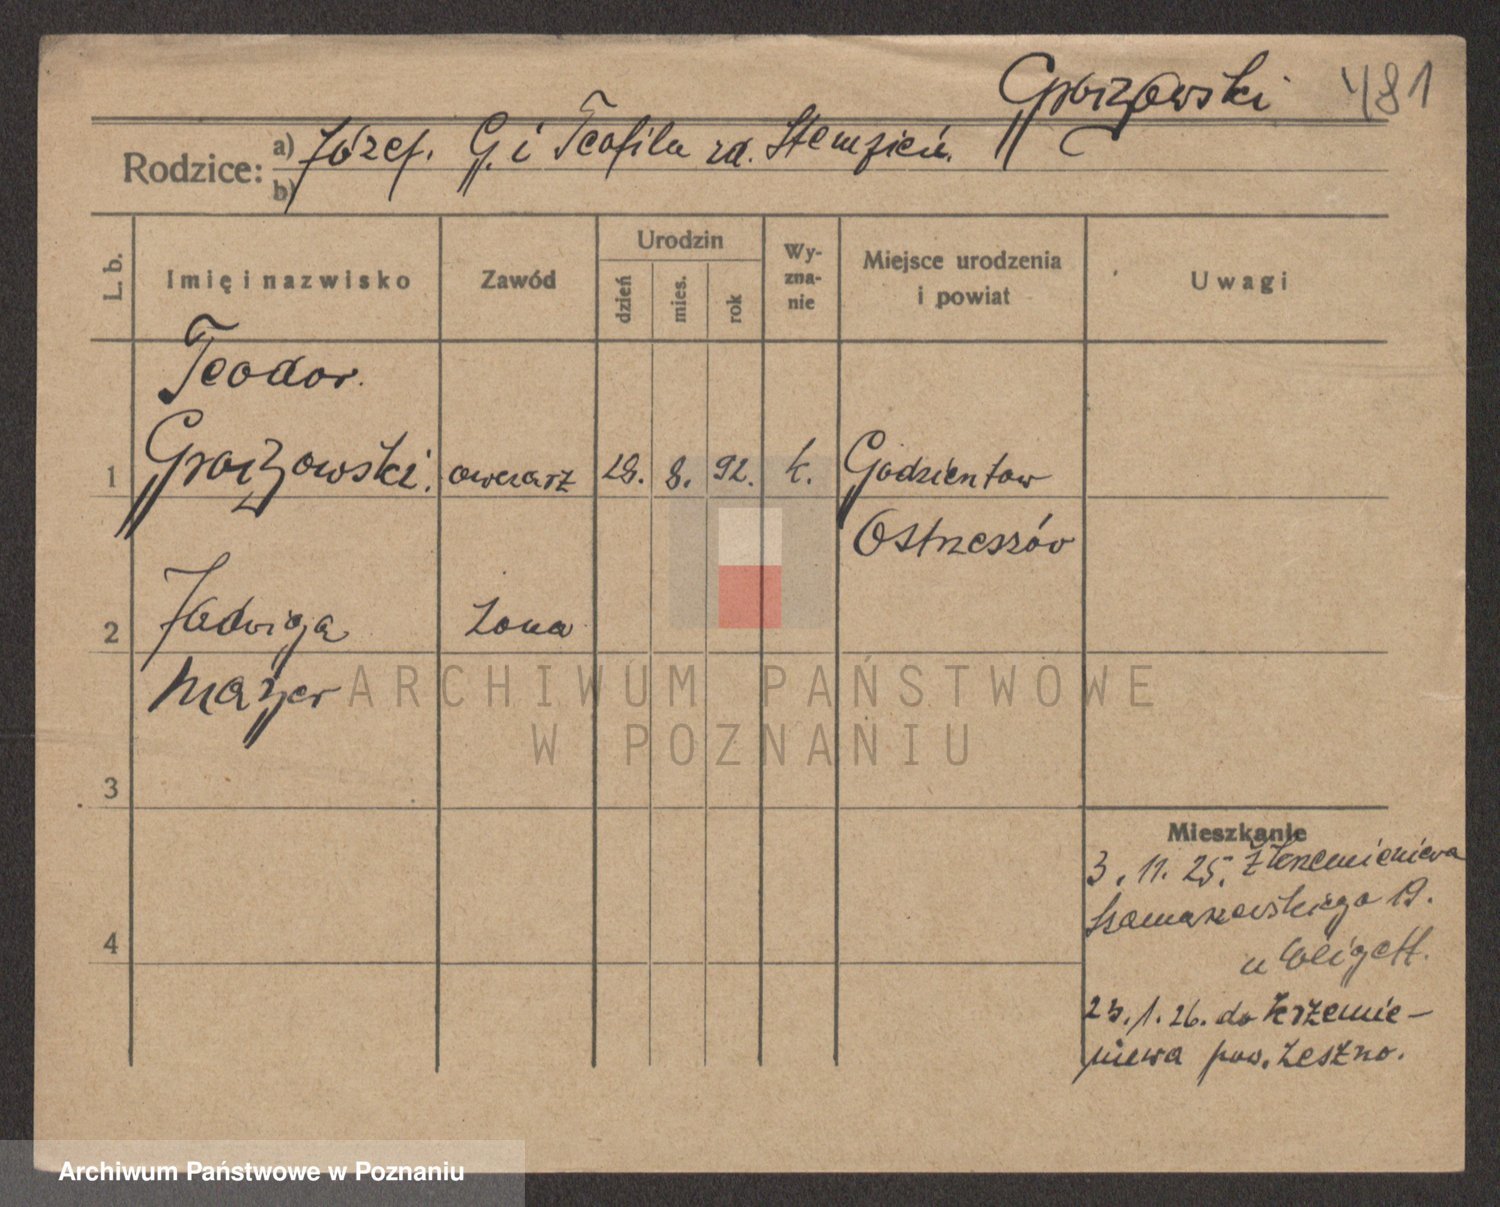 Gorzowski 481
Rodzice: a) Józef. G. i Teofila zd. Stempień.
b)
L. b. Imię i nazwisko Zawód Urodzin Wyznanie Miejsce urodzenia i powiat Uwagi
dzień mies. rok
Teodor.
1 Gorzowski. owczarz 28. 8. 92. k. Godzientow
Ostrzeszów
2 Jadwiga żona
Mayer
3
Mieszkanie
3. 11. 25. z Krzemieniewa
19.
4
u
23. 1. 26. do Krzemie-
niewa pow. Leszno.
ARCHIWUM PAŃSTWOWE
W POZNANIU
Archiwum Państwowe w Poznaniu